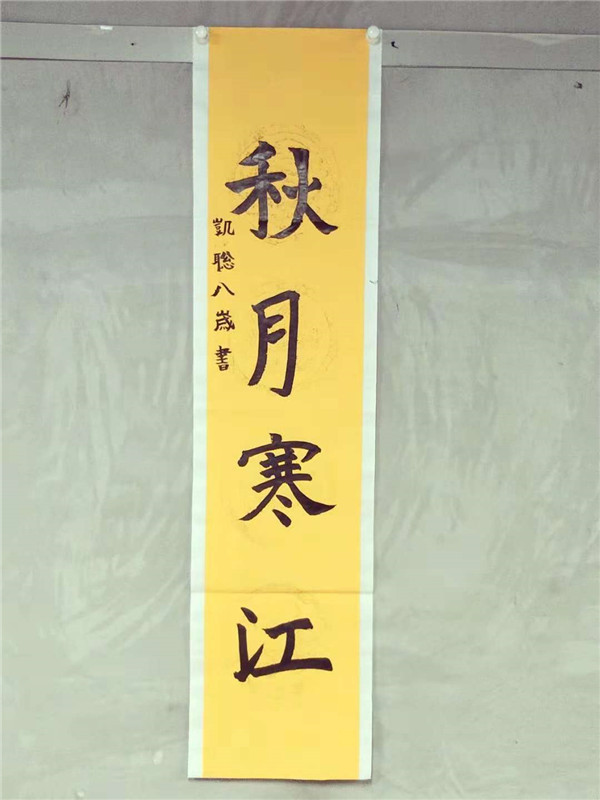 秋月寒江
凱聡八歲書